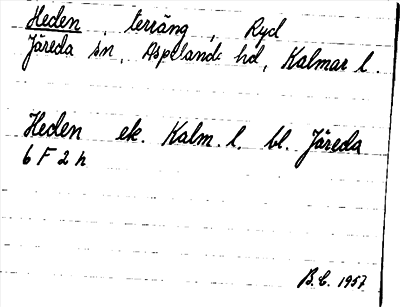 Heden, terräng, Ryd
Järeda sn, Aspelands hd, Kalmar l.
Heden ek. Kalm. l. bl. Järeda
6 F 2 h
B.E. 1957